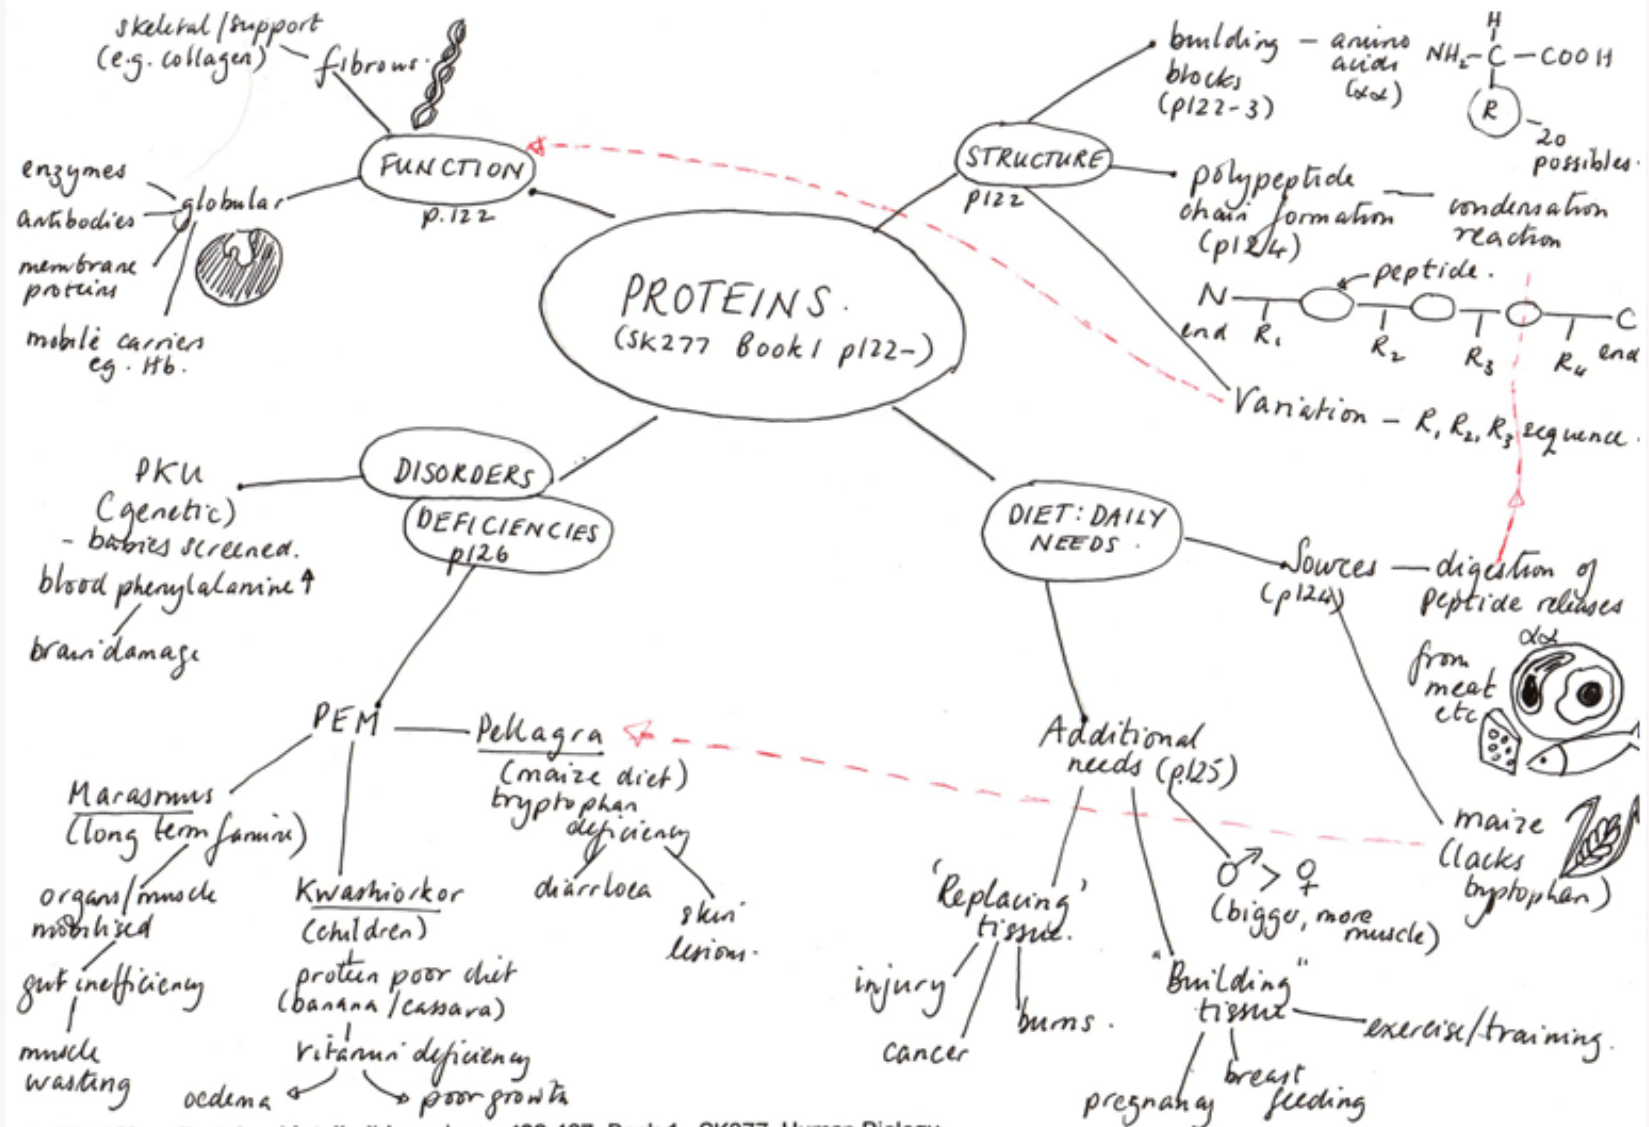 PROTEINS.
(SK277 Book 1 p122-)
FUNCTION
p.122
fibrous.
skeletal/support
(e.g. collagen)
globular
enzymes
antibodies
membrane
proteins
mobile carriers
eg. Hb.
STRUCTURE
p122
building
blocks
(p122-3)
– amino
acids
(αα)
H
NH2–C–COOH
R
20
possibles.
polypeptide
chain formation
(p124)
condensation
reaction
peptide.
N
end
R1
R2
R3
R4
C
end
Variation – R1 R2, R3 sequence.
DISORDERS
DEFICIENCIES
p126
PKU
(genetic)
- babies screened.
blood phenylalanine ↑
brain damage
PEM
Marasmus
(long term famine)
organs/muscle
mobilised
gut inefficiency
muscle
wasting
Kwashiorkor
(children)
protein poor diet
(banana/cassara)
vitamin deficiency
oedema
poor growth
Pellagra
(maize diet)
tryptophan
deficiency
diarrhoea
skin
lesions.
DIET: DAILY
NEEDS.
Sources
(p124)
digestion of
peptide releases
αα
from
meat
etc
maize
(lacks
tryptophan)
Additional
needs (p.125)
♂ > ♀
(bigger, more
muscle)
'Replacing'
tissue.
injury
cancer
burns.
"Building"
tissue
exercise/training.
breast
feeding
pregnancy